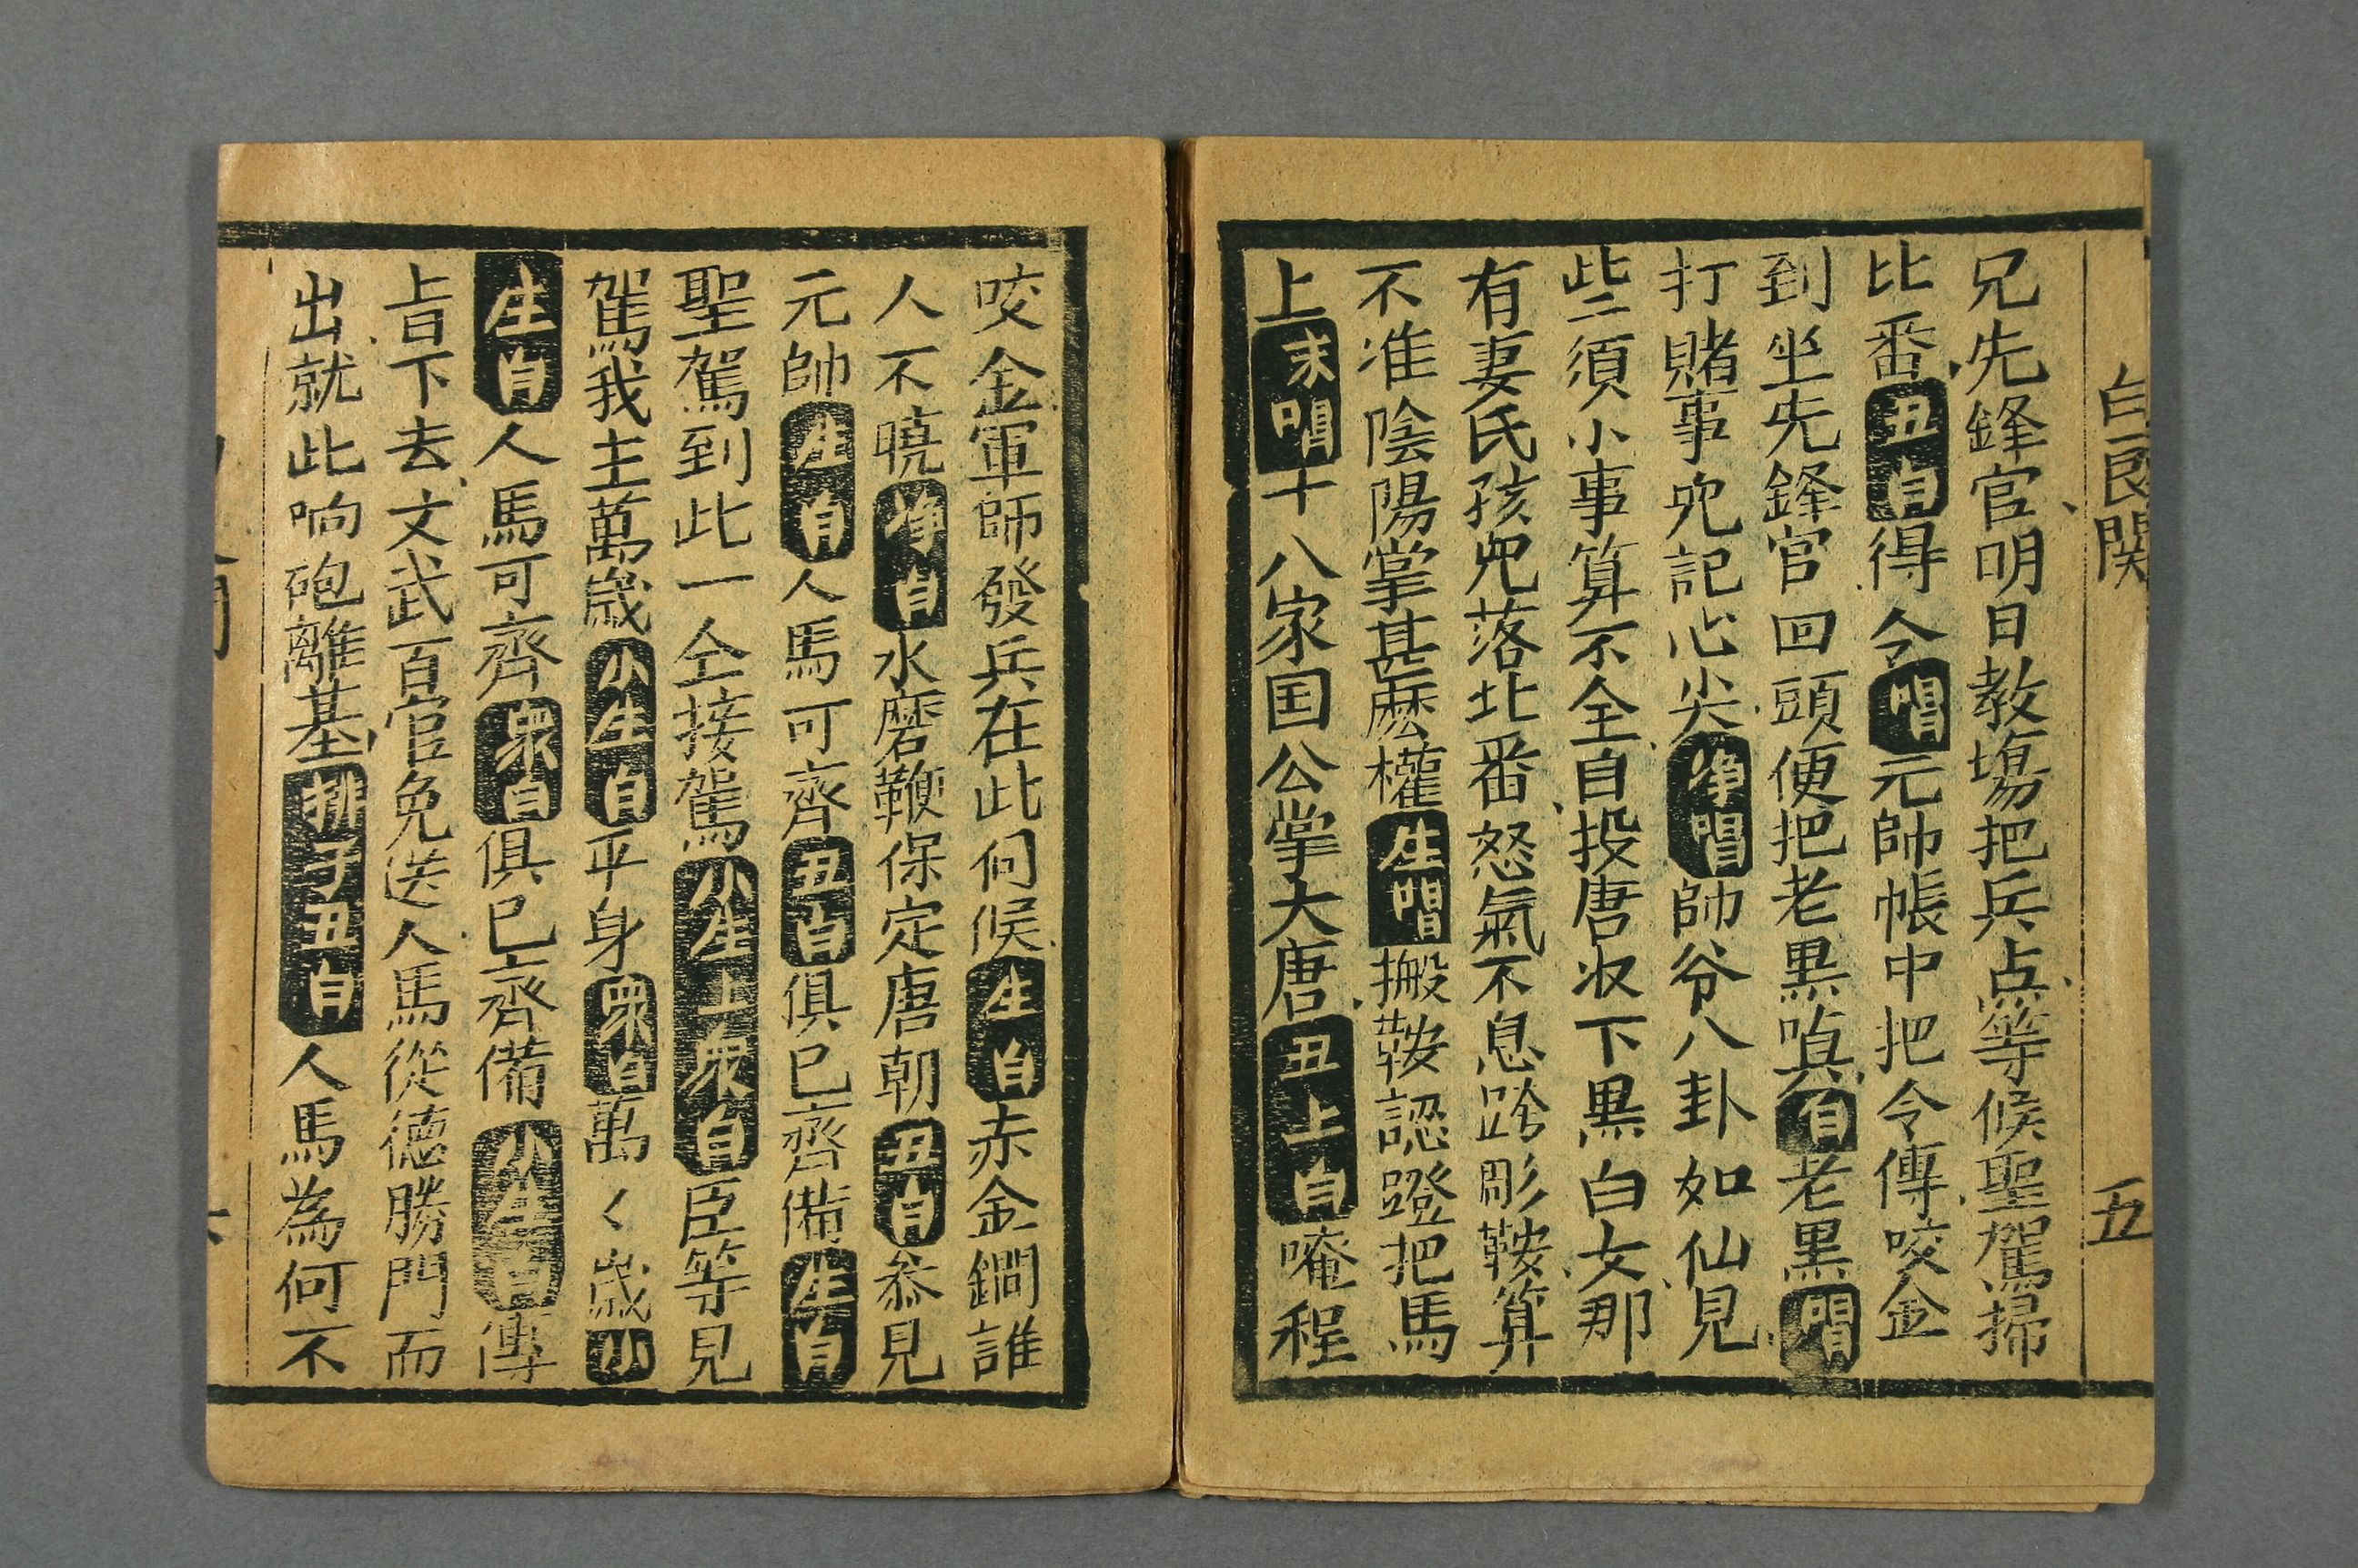 白良関 五
兄先鋒官明日教塲把兵点等候聖駕掃
比番丑白得令唱元帥帳中把令傳咬金
到坐先鋒官回頭便把老黒嗔白老黒唱
打賭事兒記心尖净唱帥爷八卦如仙見
些二須小事算不全自投唐收下黒白女那
有妻氏孩兒落北番怒氣不息跨彫鞍算
不准陰陽掌甚麽權生唱搬鞍認蹬把馬
上末唱十八家国公掌大唐丑上白唵程
咬金軍師發兵在此伺候生白赤金鐧誰
人不曉净白水磨鞭保定唐朝丑白叅見
元帥生白人馬可齊丑白俱已齊備生白
聖駕到此一仝接駕小生上衆白臣等見
駕我主萬歲小生白平身衆白萬く歲小
生白人馬可齊衆白俱已齊備小生白傳
上旨下去文武百官免送人馬從德勝門而
出就此响砲離基排子丑白人馬為何不